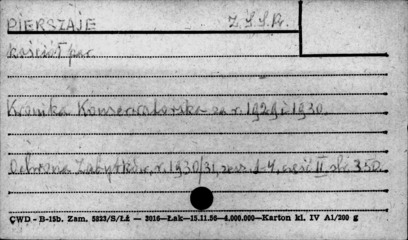 PIERSZAJE Z.S.S.R.
kościół par.
Kronika Konserwatorska za r. 1929 i 1930.
Ochrona Zabytków, r. 1930/31, zesz. 1-4, część II str. 350.
ÇWD - B-15b. Zam. 5823/S/Łź — 2016—Łak—15.11.56—4.000.000—Karton kl. IV A1/200 g